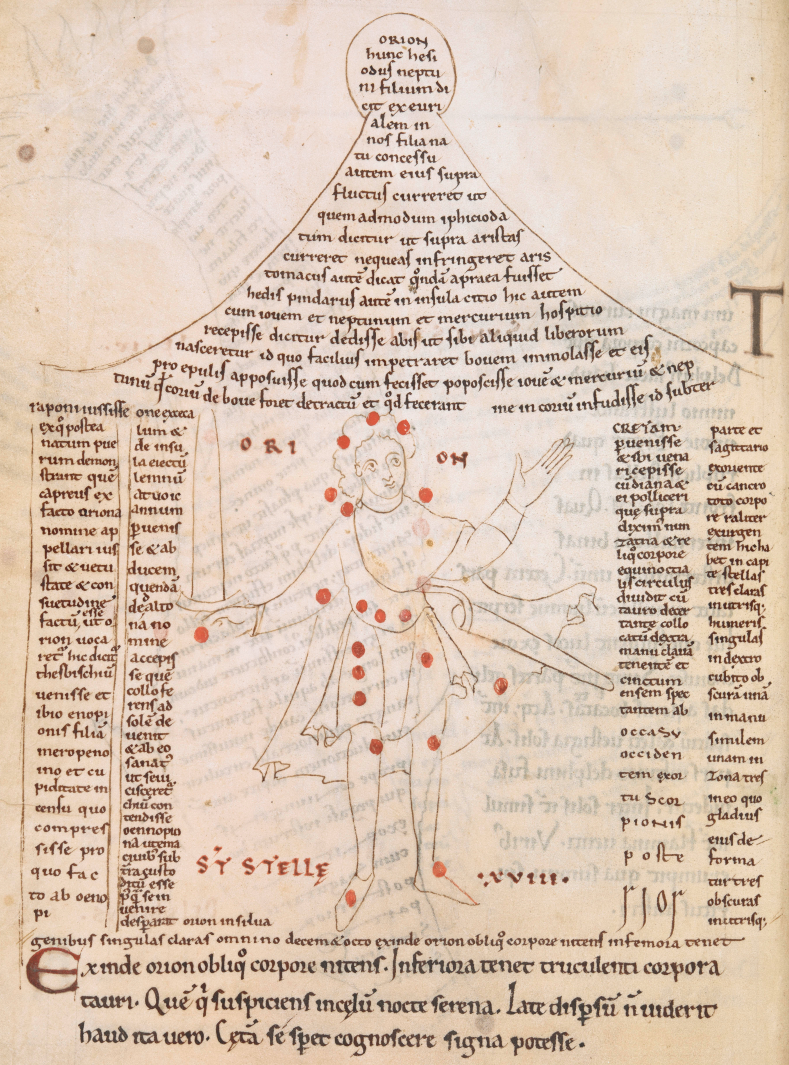 ORION
hunc hesi
odus neptu
ni filium di
cit ex euri
alem in
nos filia na
tu concessu
autem eius supra
fluctus curreret ut
quemadmodum iphicioda
tum dicitur ut supra aristas
curreret nequeas infringeret aris
tomacus autē dicat qndā apraea fuisset
hedis pindarus autē in insula citio hic autem
cum iovem et neptunum et mercurium hospitio
recepisse dicitur dedisse abis ut sibi aliquid liberorum
nasceretur id quo facilius impetraret bovem immolasse et eis
pro epulis apposuisse quod cum fecisset poposcisse iovē & mercuriū & nep
tunū coriū de bove foret detractū et qd fecerant me in coriū infudisse id subter
raponi iussisse
ex q postea
natum pue
rum demon
strant quē
capreus ex
facto oriona
nomine ap
pellari ius
sit & vetu
state & con
suetudine
factū ut o
rion voca
ret hic dicit
thesbischiū
venisse et
ibio enopi
onis filiā
meropeno
mo et cu
piditate in
censu quo
compres
sisse pro
quo fac
to ab oeno
pi
one exceca
lum &
de insu
la eiectū
lemnū
at voic
annum
pvenis
se & ab
ducem
quendā
dealto
na no
mine
accepis
se quē
collo fe
rens ad
solē de
venit
& ab eo
sanat
ut sevi
cisceret
chiū con
tendisse
oenniopio
nā
civib sub
tra gusto
ditū esse
pq se in
venire
desparat orion in silua
ORI
ON
cretam
pvenisse
& sbi vena
ri cepisse
cū diana &
ei polliceri
que supra
diximus
& re
liq corpore
equinoctia
lis circulus
dividit cū
tauro decer
tante collo
catū dextra
manu clavā
tenente et
cinctum
ensem spec
tantem ab
occasu
occiden
tem exor
tu scor
pionis
poste
rior
parte et
sagittario
exoriente
cū cancro
toto corpo
re raliter
exurgen
tem hic ha
bet in capi
te stellas
tres claras
in utrisq
humeris
singulas
in dextro
cubito ob
scurā unā
in manu
similem
unam in
zona tres
in eo quo
gladius
eius de
forma
tur tres
obscuras
in utrisq
SŦ STELLĘ
·XVIII·
genibus singulas claras omnino decem & octo exinde orion obliq corpore nitens infemora tenet
Exinde orion obliq corpore nitens. Inferiora tenet truculenti corpora
tauri. Quē q suspiciens in celū nocte serena. Late dispsū n viderit
haud ita vero. Cętā se spet cognoscere signa potesse.
T